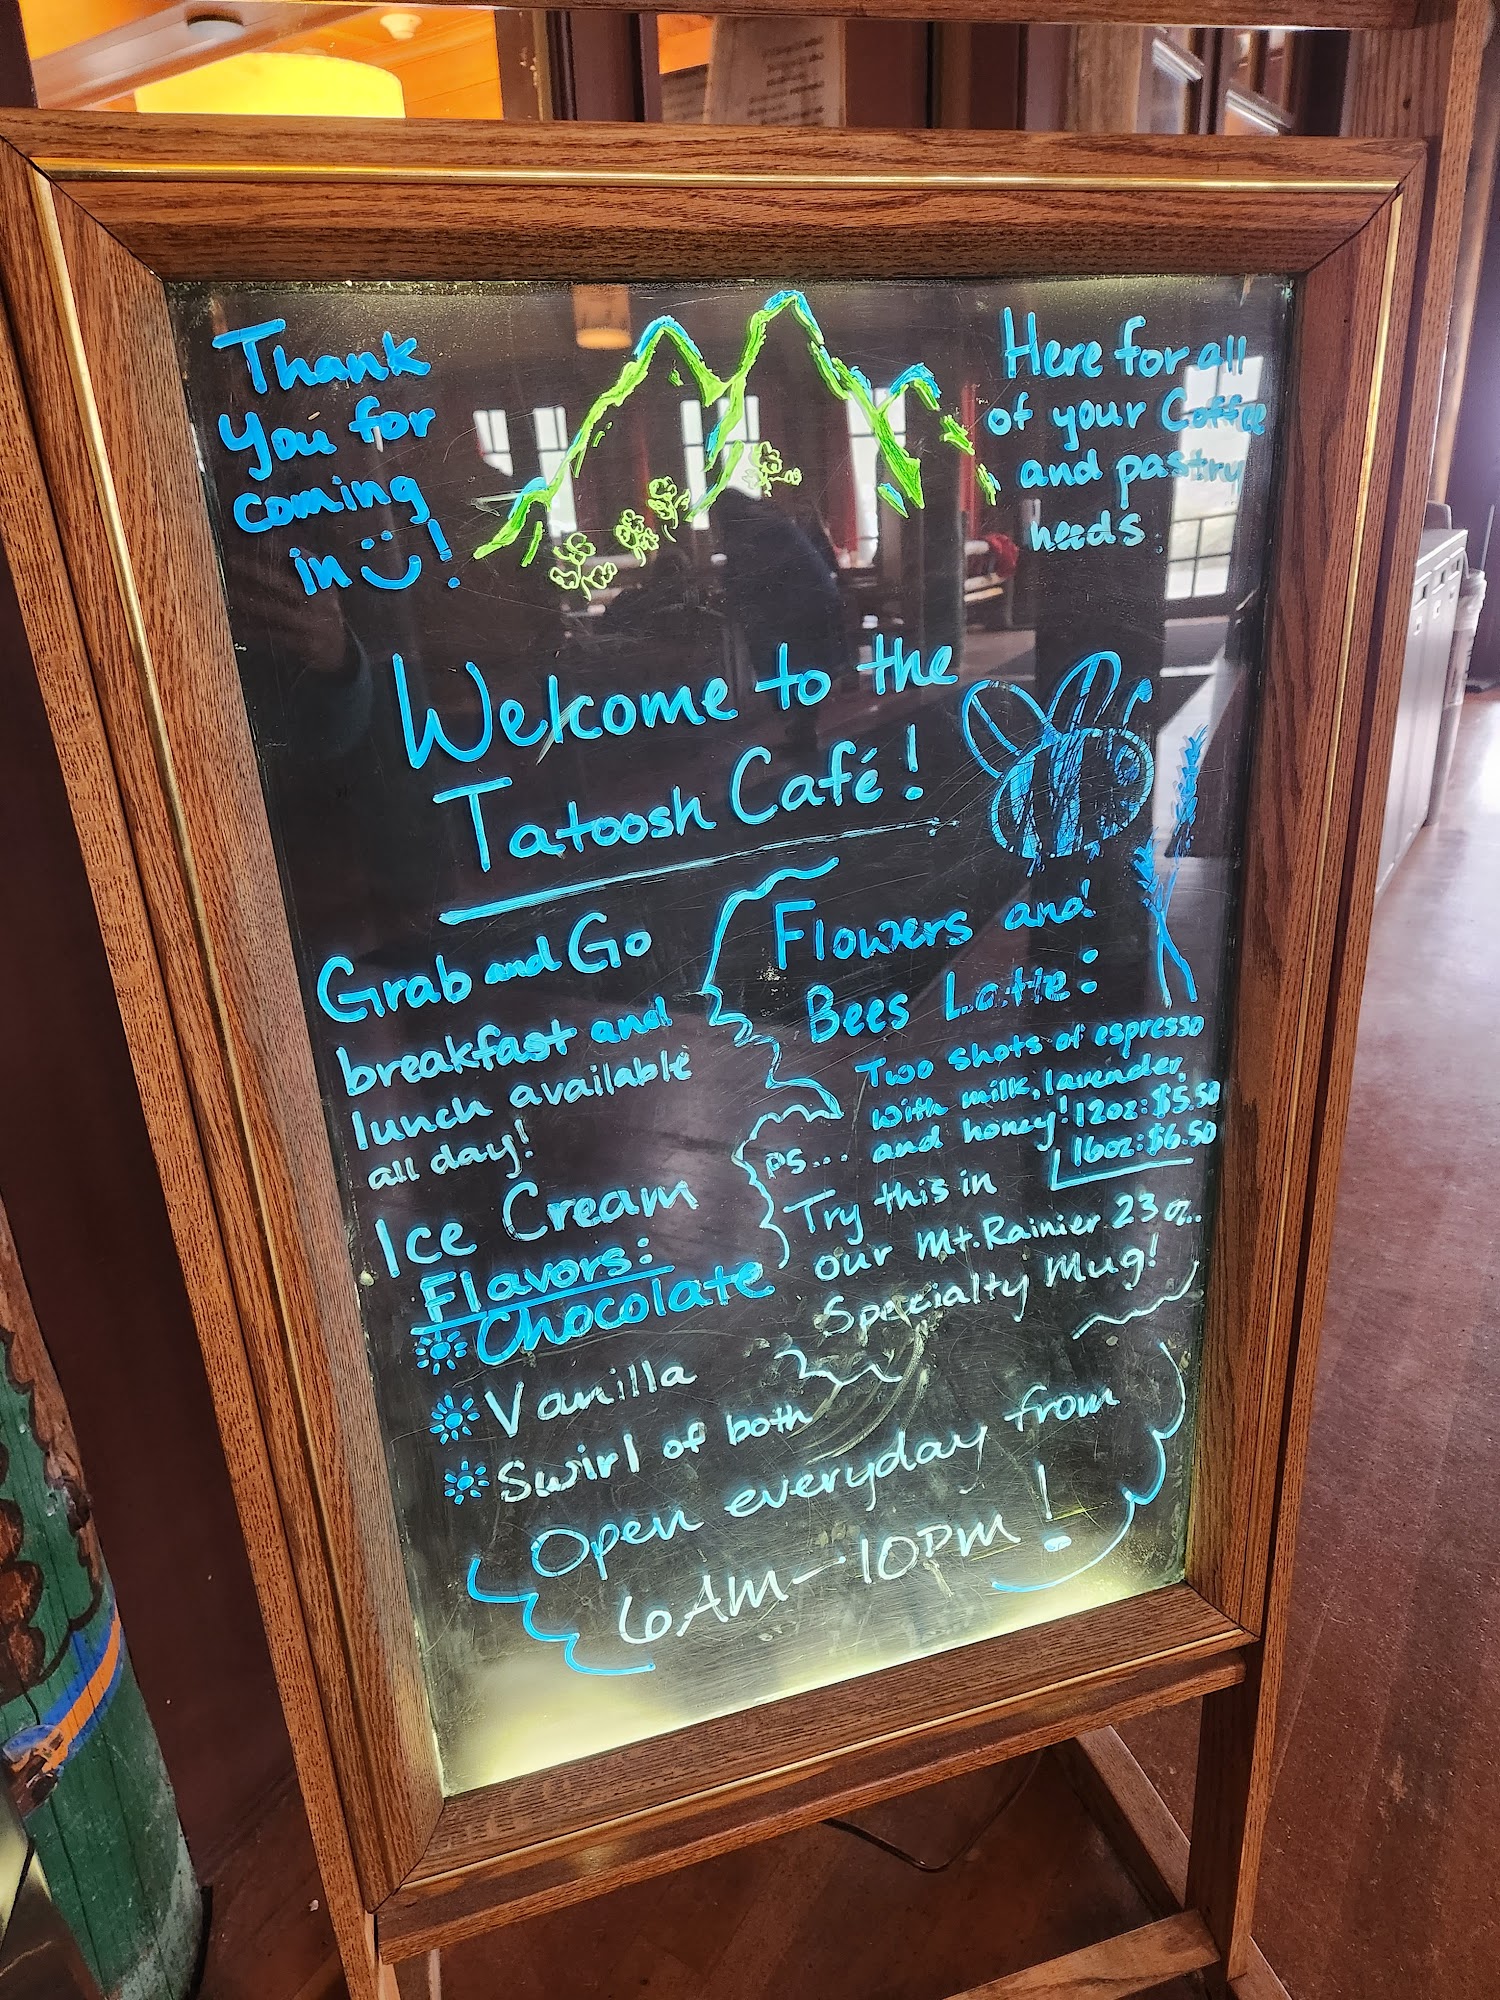 Thank
you for
coming
in !
Here for all
of your Coffee
and pastry
needs.
Welcome to the
Tatoosh Café!
Grab and Go
breakfast and
lunch available
all day!
Ice Cream
Flavors:
Chocolate
Vanilla
Swirl of both
Flowers and
Bees Latte:
Two shots of espresso
with milk, lavender
and honey! 12oz: $5.50
16oz: $6.50
PS... Try this in
our Mt. Rainier 23 oz.
Specialty Mug!
Open everyday from
6AM-10PM!